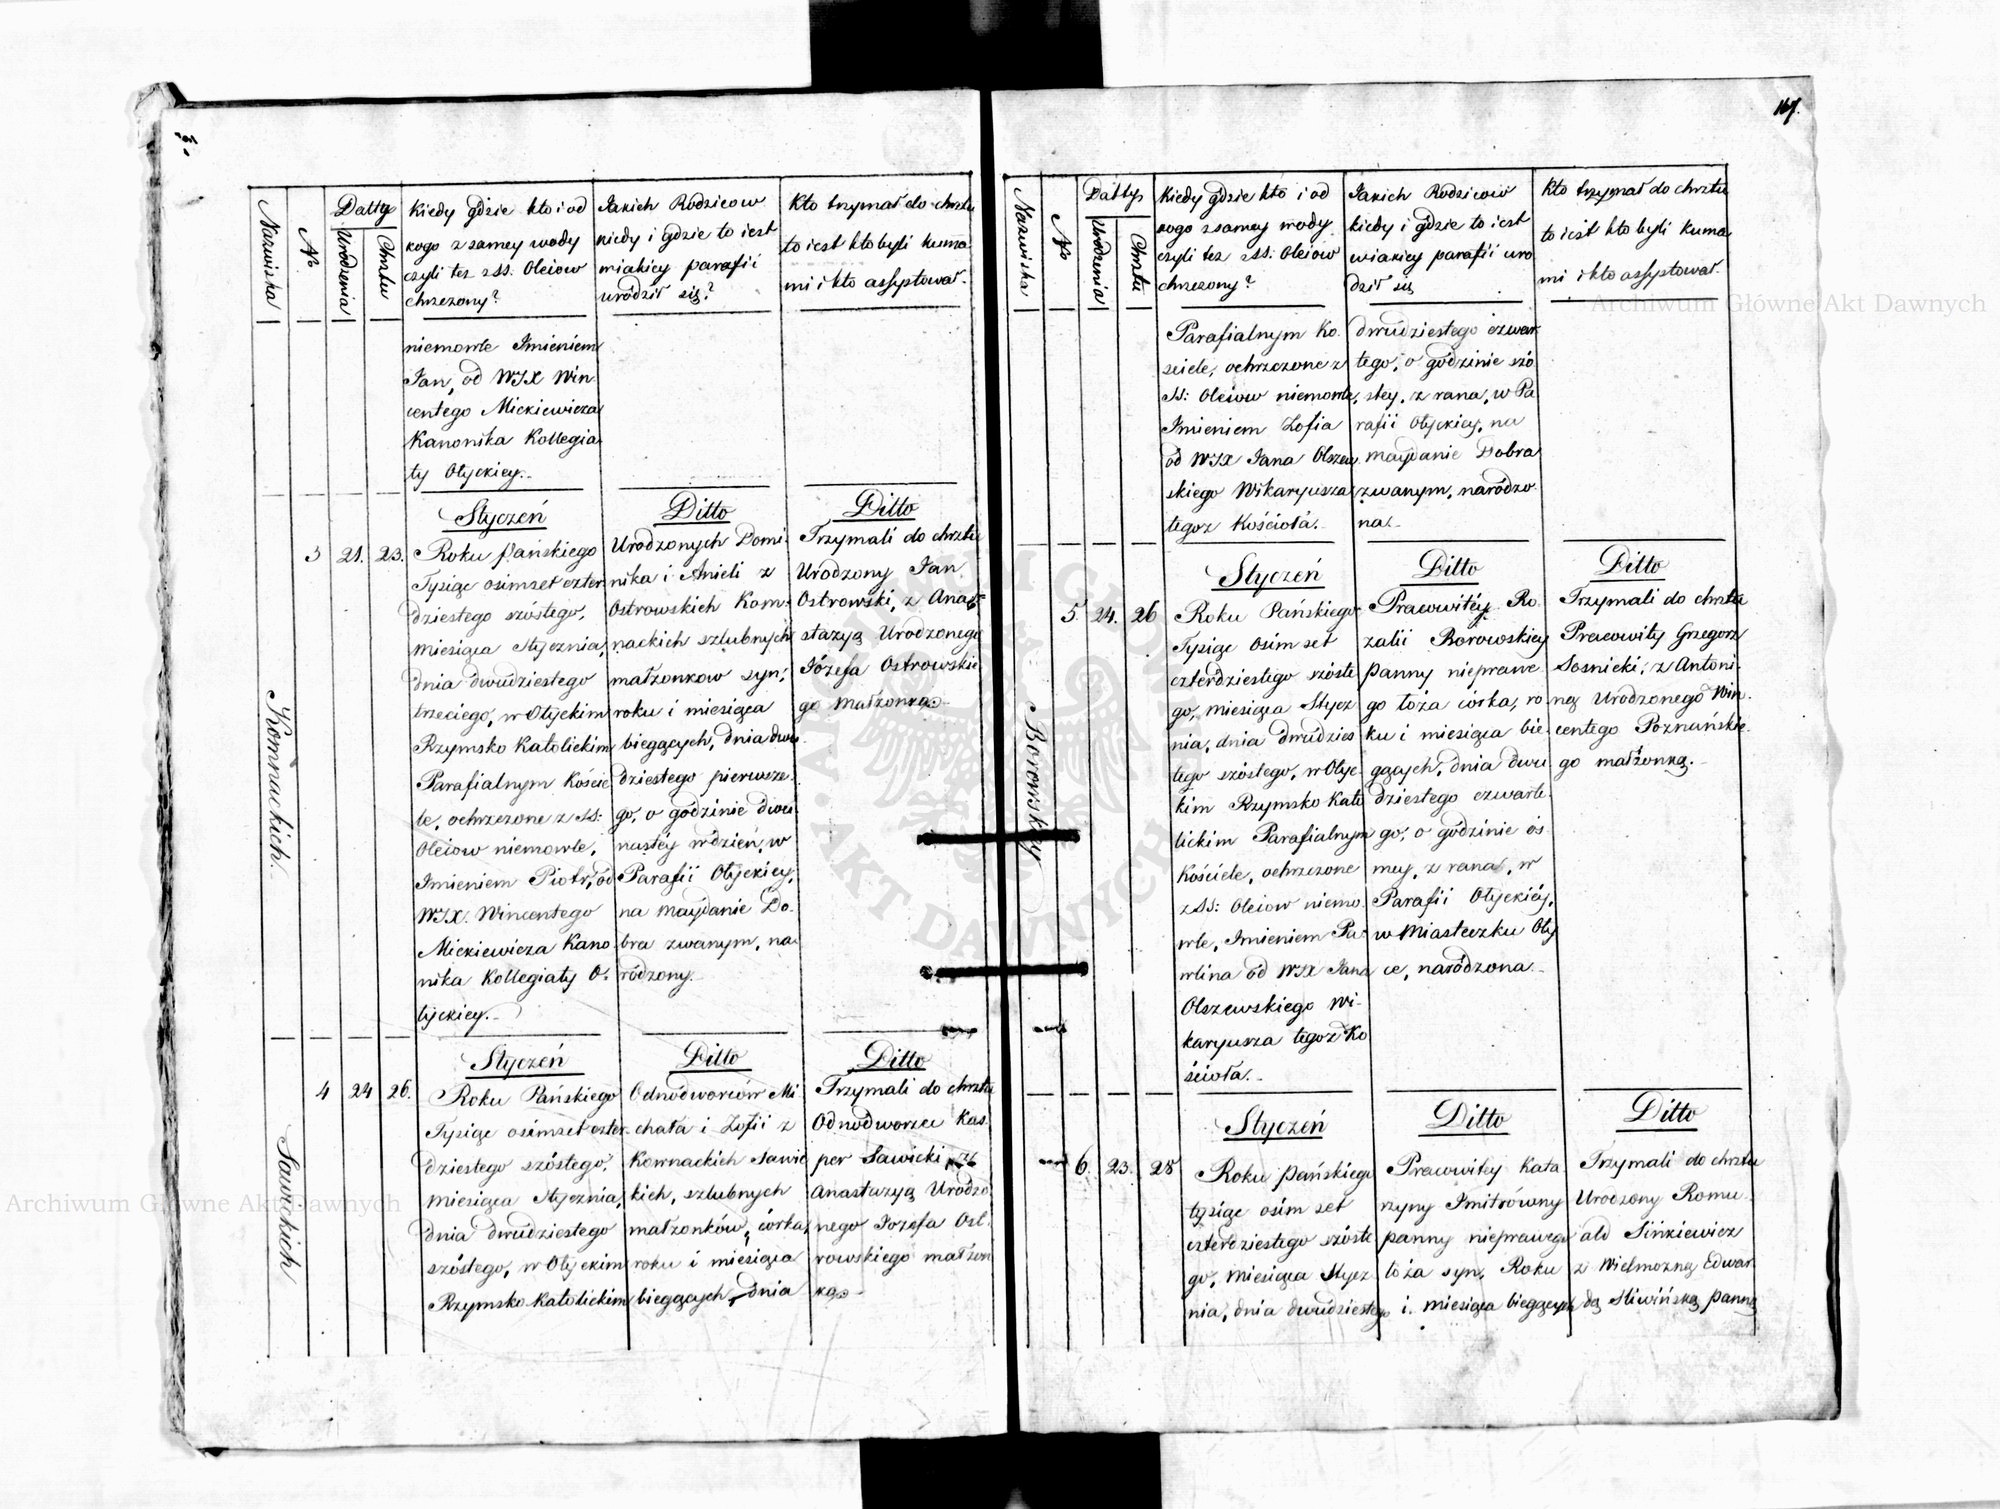 167.
Nazwiska
N
Datty
Urodzenia
Chrztu
Kiedy gdzie kto i od
kogo z samey wody
czyli tez z SS: Oleiow
chrzczony?
Jakich Rodzicow
kiedy i gdzie to iest
w iakiey parafii
urodził się?
Kto trzymał do chrztu
to iest kto byli kuma
mi i kto assystował.
niemowle Imieniem
Jan, od WJX Win
centego Mickiewicza
Kanonika Kollegia
ty Ołyckiey.
Kornnackich.
3
21.
23.
Styczeń
Roku Pańskiego
Tysiąc osimset czter
dziestego szóstego,
miesiąca Stycznia,
dnia dwudziestego
trzeciego, w Ołyckim
Rzymsko Katolickim
Parafialnym Koście
le, ochrzczone z SS:
Oleiow niemowle,
Imieniem Piotr, od
WJX. Wincentego
Mickiewicza Kano
nika Kollegiaty O.
łyckiey.
Ditto
Urodzonych Domi
nika i Anieli z
Ostrowskich Korn
nackich szlubnych
małżonkow syn,
roku i miesiąca
biegących, dnia dwu
dziestego pierwsze
go, o godzinie dwu
nastéy w dzień, w
Parafii Ołyckiey,
na Maydanie Do.
bra zwanym, na
rodzony.
Ditto
Trzymali do chrztu
Urodzony Jan
Ostrowski, z Ana
stazyą Urodzonego
Józefa Ostrowskie
go Małżonką.
Sawickich
4
24
26.
Styczeń
Roku Pańskiego
Tysiąc osimset czter
dziestego szóstego,
miesiąca Stycznia,
dnia dwudziestego
szóstego, w Ołyckim
Rzymsko Katolickim
Ditto
Odnodworców Mi
chała i Zofii z
Kornackich Sawic
kich, szlubnych
małżonków, córka,
roku i miesiąca
biegących, dnia
Ditto
Trzymali do chrztu
Odnodworzec Kas
per Sawicki z
Anastazyą Urodzo
nego Jozefa Ost
rowskiego małżon
ką
Nazwiska
N
Datty
Urodzenia
Chrztu
Kiedy gdzie kto i od
kogo z samey wody
czyli tez z SS: Oleiow
chrzczony?
Jakich Rodzicow
kiedy i gdzie to iest
w iakiey parafii uro
dził się
Kto trzymał do chrztu
to iest kto byli kuma
mi i kto assystował.
Parafialnym Ko.
ściele, ochrzczone z
SS: Oleiow niemowle,
Imieniem Zofia
od WJX Jana Olszew
skiego Wikaryusza
tegoz Kościoła.
dwudziestego czwar
tego, o godzinie szó
stey, z rana, w Pa
rafii Ołyckiey, na
maydanie Dobra
zwanym, narodzo
na.
Borowskiey
5.
24.
26
Styczeń
Roku Pańskiego
Tysiąc osim set
czterdziestego szóste
go, miesiąca Stycz
nia, dnia dwudzies
tego szóstego, w Ołyc
kim Rzymsko Kato
lickim Parafialnym
Kościele, ochrzczone
z SS: Oleiow niemo
wle, Imieniem Pa
wlina od WJX Jana
Olszewskiego Wi
karyusza tegoz Ko
ścioła.
Ditto
Pracowitéy Ro
zalii Borowskiey
Panny nieprawe
go łoża córka, ro
ku i miesiąca bie
gących, dnia dwu
dziestego czwarte
go, o godzinie ós
mey, z rana, w
Parafii Ołyckiéy,
w Miasteczku Oły
ce, narodzona.
Ditto
Trzymali do chrztu
Pracowity Grzegorz
Sosnicki, z Antoni
ną Urodzonego Win
centego Poznańskie
go małżonką.
6.
23.
28
Styczeń
Roku Pańskiego
tysiąc osim set
czterdziestego szóste
go, miesiąca Stycz
nia, dnia dwudziestego
Ditto
Pracowitey Kata
rzyny Dmitrówny
panny nieprawego
łoża syn, Roku
i miesiąca biegących
Ditto
Trzymali do chrztu
Urodzony Romu
ald Sinkiewicz
z Wielmozną Edwar
dą Sliwińską panną
Archiwum Główne Akt Dawnych
Archiwum Główne Akt Dawnych